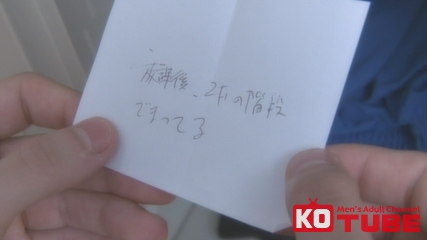 放課後、2Fの階段
でまってる
KO Men's Adult Channel
TUBE